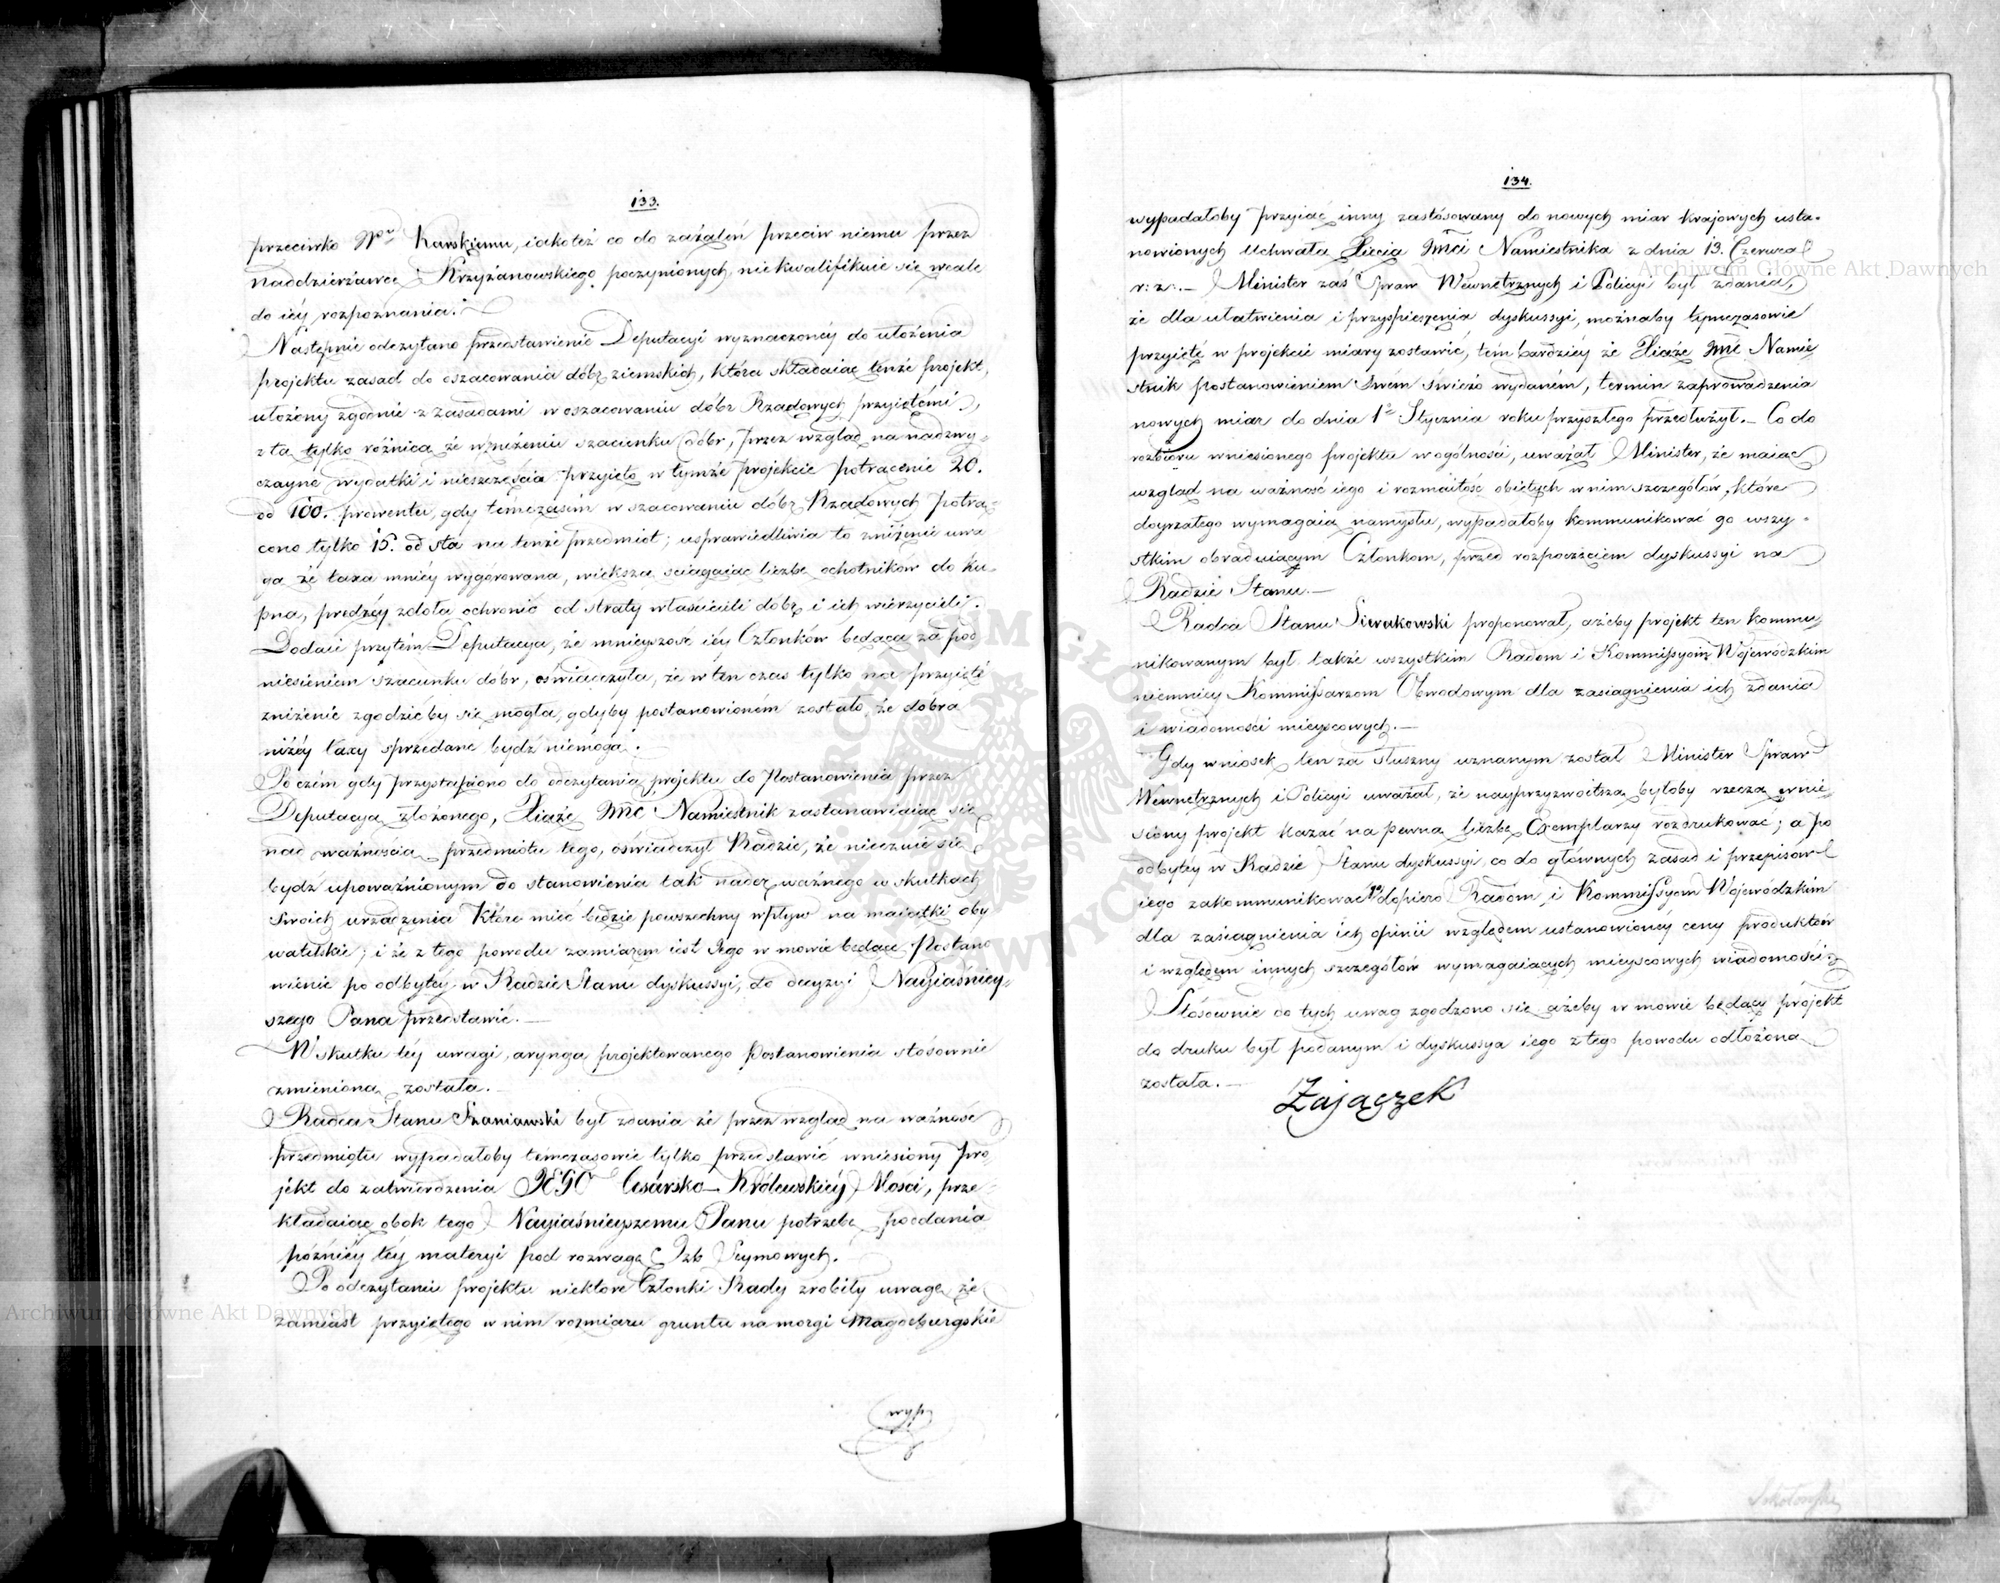 133.
przeciwko Wmu Karskiemu, iakoteż co do zażaleń przeciw niemu przez
Naddzierżawcę Krzyżanowskiego poczynionych, niekwalifikuie się wcale
do iéy rozpoznania.
Następnie odczytano przedstawienie Deputacyi wyznaczonéy do ułożenia
projektu zasad do oszacowania dóbr ziemskich, która składaiąc tenże projekt,
ułożony zgodnie z zasadami w oszacowaniu dóbr Rządowych przyiętemi,
z tą tylko różnicą że w zniżeniu szacunku dóbr, przez wzgląd na nadzwy-
czayne wydatki i nieszczęścia przyięto w tymże projekcie potrącenie 20.
od 100. prowentu, gdy tymczasem w szacowaniu dóbr Rządowych potrą-
cono tylko 15. od sta na tenże przedmiot; usprawiedliwia to zniżenie uwa
gą że taxa mniéy wygórowana, większą ściągaiąc liczbę ochotników do ku-
pna, prędzéy zdoła ochronić od straty właścicieli dóbr i ich wierzycieli.
Dodaie przytém Deputacya, że mnieyszość iéy Członków będąca za pod
niesieniem szacunku dóbr, oświadczyła, że w ten czas tylko na przyięte
zniżenie zgodzićby się mogła, gdyby postanowioném zostało, że dobra
niżéy taxy sprzedane bydź niemogą.
Poczém gdy przystąpiono do odczytania projektu do Postanowienia przez
Deputacyą złożonego, Xiąże Jmć Namiestnik zastanawiaiąc się
nad ważnością przedmiotu tego, oświadczył Radzie, że nieczuie się
bydź upoważnionym do stanowienia tak nader ważnego w skutkach
swoich urządzenia które mieć będzie powszechny wpływ na maiątki oby
watelskie; i że z tego powodu zamiarem iest Jego w mowie będące Postano
wienie po odbytéy w Radzie Stanu dyskussyi, do decyzyi Nayiaśniey-
szego Pana przedstawić. —
W skutku téy uwagi, arynga projektowanego Postanowienia stósownie
zmienioną została. —
Radca Stanu Szaniawski był zdania że przez wzgląd na ważność
przedmiotu wypadałoby tymczasowie tylko przedstawić wniesiony pro-
jekt do zatwierdzenia JEGO Cesarsko-Królewskiéy Mości, prze-
kładaiąc obok tego Nayiaśnieyszemu Panu potrzebę poddania
późniéy téy materyi pod rozwagę Izb Seymowych.
Po odczytaniu projektu niektóre Członki Rady zrobiły uwagę że
zamiast przyiętego w nim rozmiaru gruntu na morgi Magdeburgskie
wyp
134.
wypadałoby przyiąć inny zastósowany do nowych miar krajowych usta-
nowionych Uchwałą Xięcia Jmci Namiestnika z dnia 13. Czerwca
r: z:. — Minister zaś Spraw Wewnętrznych i Policyi był zdania,
że dla ułatwienia i przyspieszenia dyskussyi, możnaby tymczasowie
przyięte w projekcie miary zostawić, tém bardziéy że Xiąże Jmć Namie
stnik postanowieniem swem świeżo wydaném, termin zaprowadzenia
nowych miar do dnia 1go Stycznia roku przyszłego przedłużył. — Co do
rozbioru wniesionego projektu w ogólności, uważał Minister, że maiąc
wzgląd na ważność iego i rozmaitość obiętych w nim szczegółów, które
doyrzałego wymagaią namysłu, wypadałoby kommunikować go wszy-
stkim obraduiącym Członkom, przed rozpoczęciem dyskussyi na
Radzie Stanu. —
Radca Stanu Sierakowski proponował, ażeby projekt ten kommu-
nikowanym był także wszystkim Radom i Kommissyom Wojewódzkim
niemniéy Kommissarzom Obwodowym dla zasiągnienia ich zdania
i wiadomości mieyscowych. —
Gdy wniosek ten za słuszny uznanym został Minister Spraw
Wewnętrznych i Policyi uważał, że nayprzyzwoitszą byłoby rzeczą wnie-
siony projekt kazać na pewną liczbę Exemplarzy rozdrukować; a po
odbytéy w Radzie Stanu dyskussyi, co do głównych zasad i przepisów
iego zakommunikować go dopiero Radom i Kommissyom Wojewódzkim
dla zasiągnienia ich opinii względem ustanowionéy ceny produktów
i względem innych szczegółów wymagaiących mieyscowych wiadomości.
Stósownie do tych uwag zgodzono się ażeby w mowie będący projekt
do druku był podanym i dyskussya iego z tego powodu odłożoną
została. —
Zajączek
Sokołowski
Archiwum Główne Akt Dawnych
Archiwum Główne Akt Dawnych